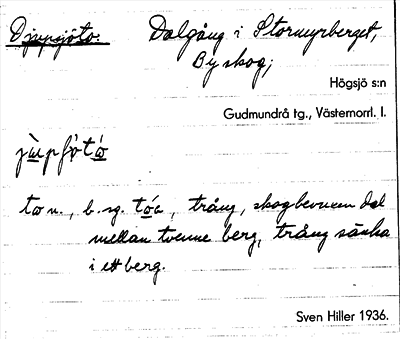 Djupsjöto: Dalgång i Stormyrberget,
Byskog;
Högsjö s:n
Gudmundrå tg., Västernorrl. l.
to n., b. sg. tóa, trång, skogbevuxen dal
mellan tvenne berg, trång sänka
i ett berg.
Sven Hiller 1936.